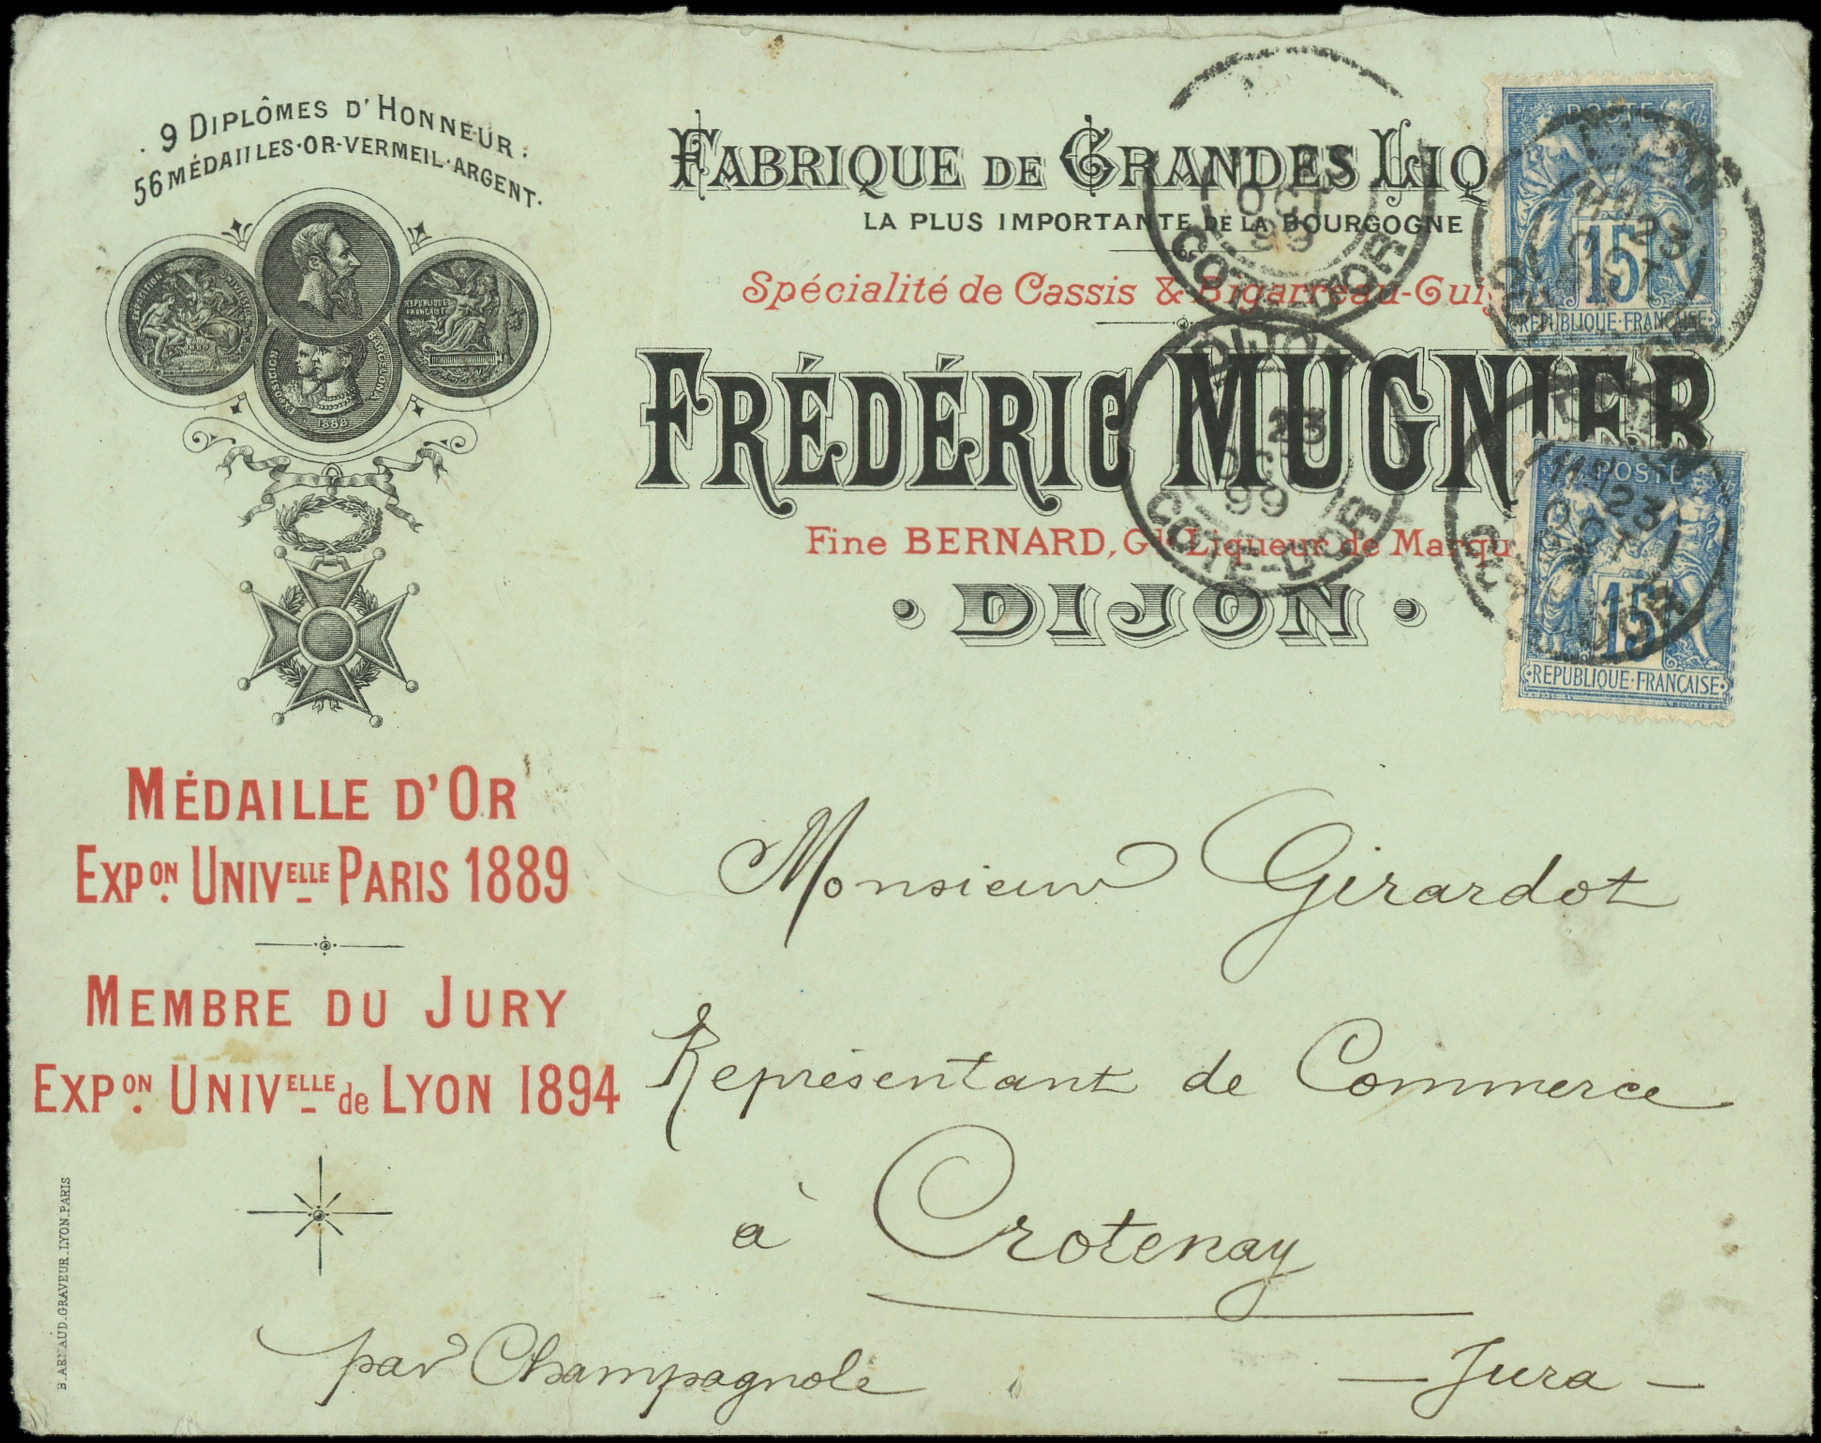 · 9 DIPLÔMES D'HONNEUR ·
56 MÉDAILLES·OR-VERMEIL·ARGENT·
EXPOSITION
RÉPUBLIQUE FRANÇAISE
EXPOSICION BARCELONA
1888
MÉDAILLE D'OR
EXPON UNIVELLE PARIS 1889
MEMBRE DU JURY
EXPON UNIVELLE de LYON 1894
B. ARNAUD. GRAVEUR. LYON. PARIS
FABRIQUE DE GRANDES LIQ
LA PLUS IMPORTANTE DE LA BOURGOGNE
Spécialité de Cassis & Bigarreau-Gui
FRÉDÉRIC MUGNIER
Fine BERNARD, Gde Liqueur de Marqu
· DIJON ·
OCT
99
COTE-D'OR
DIJON
23
OCT
99
COTE-D'OR
POSTE
15
REPUBLIQUE·FRANÇAISE
23
OCT
POSTE
15
REPUBLIQUE·FRANÇAISE
23
OCT
Monsieur Girardot
Représentant de Commerce
à Crotenay
par Champagnole
— Jura —